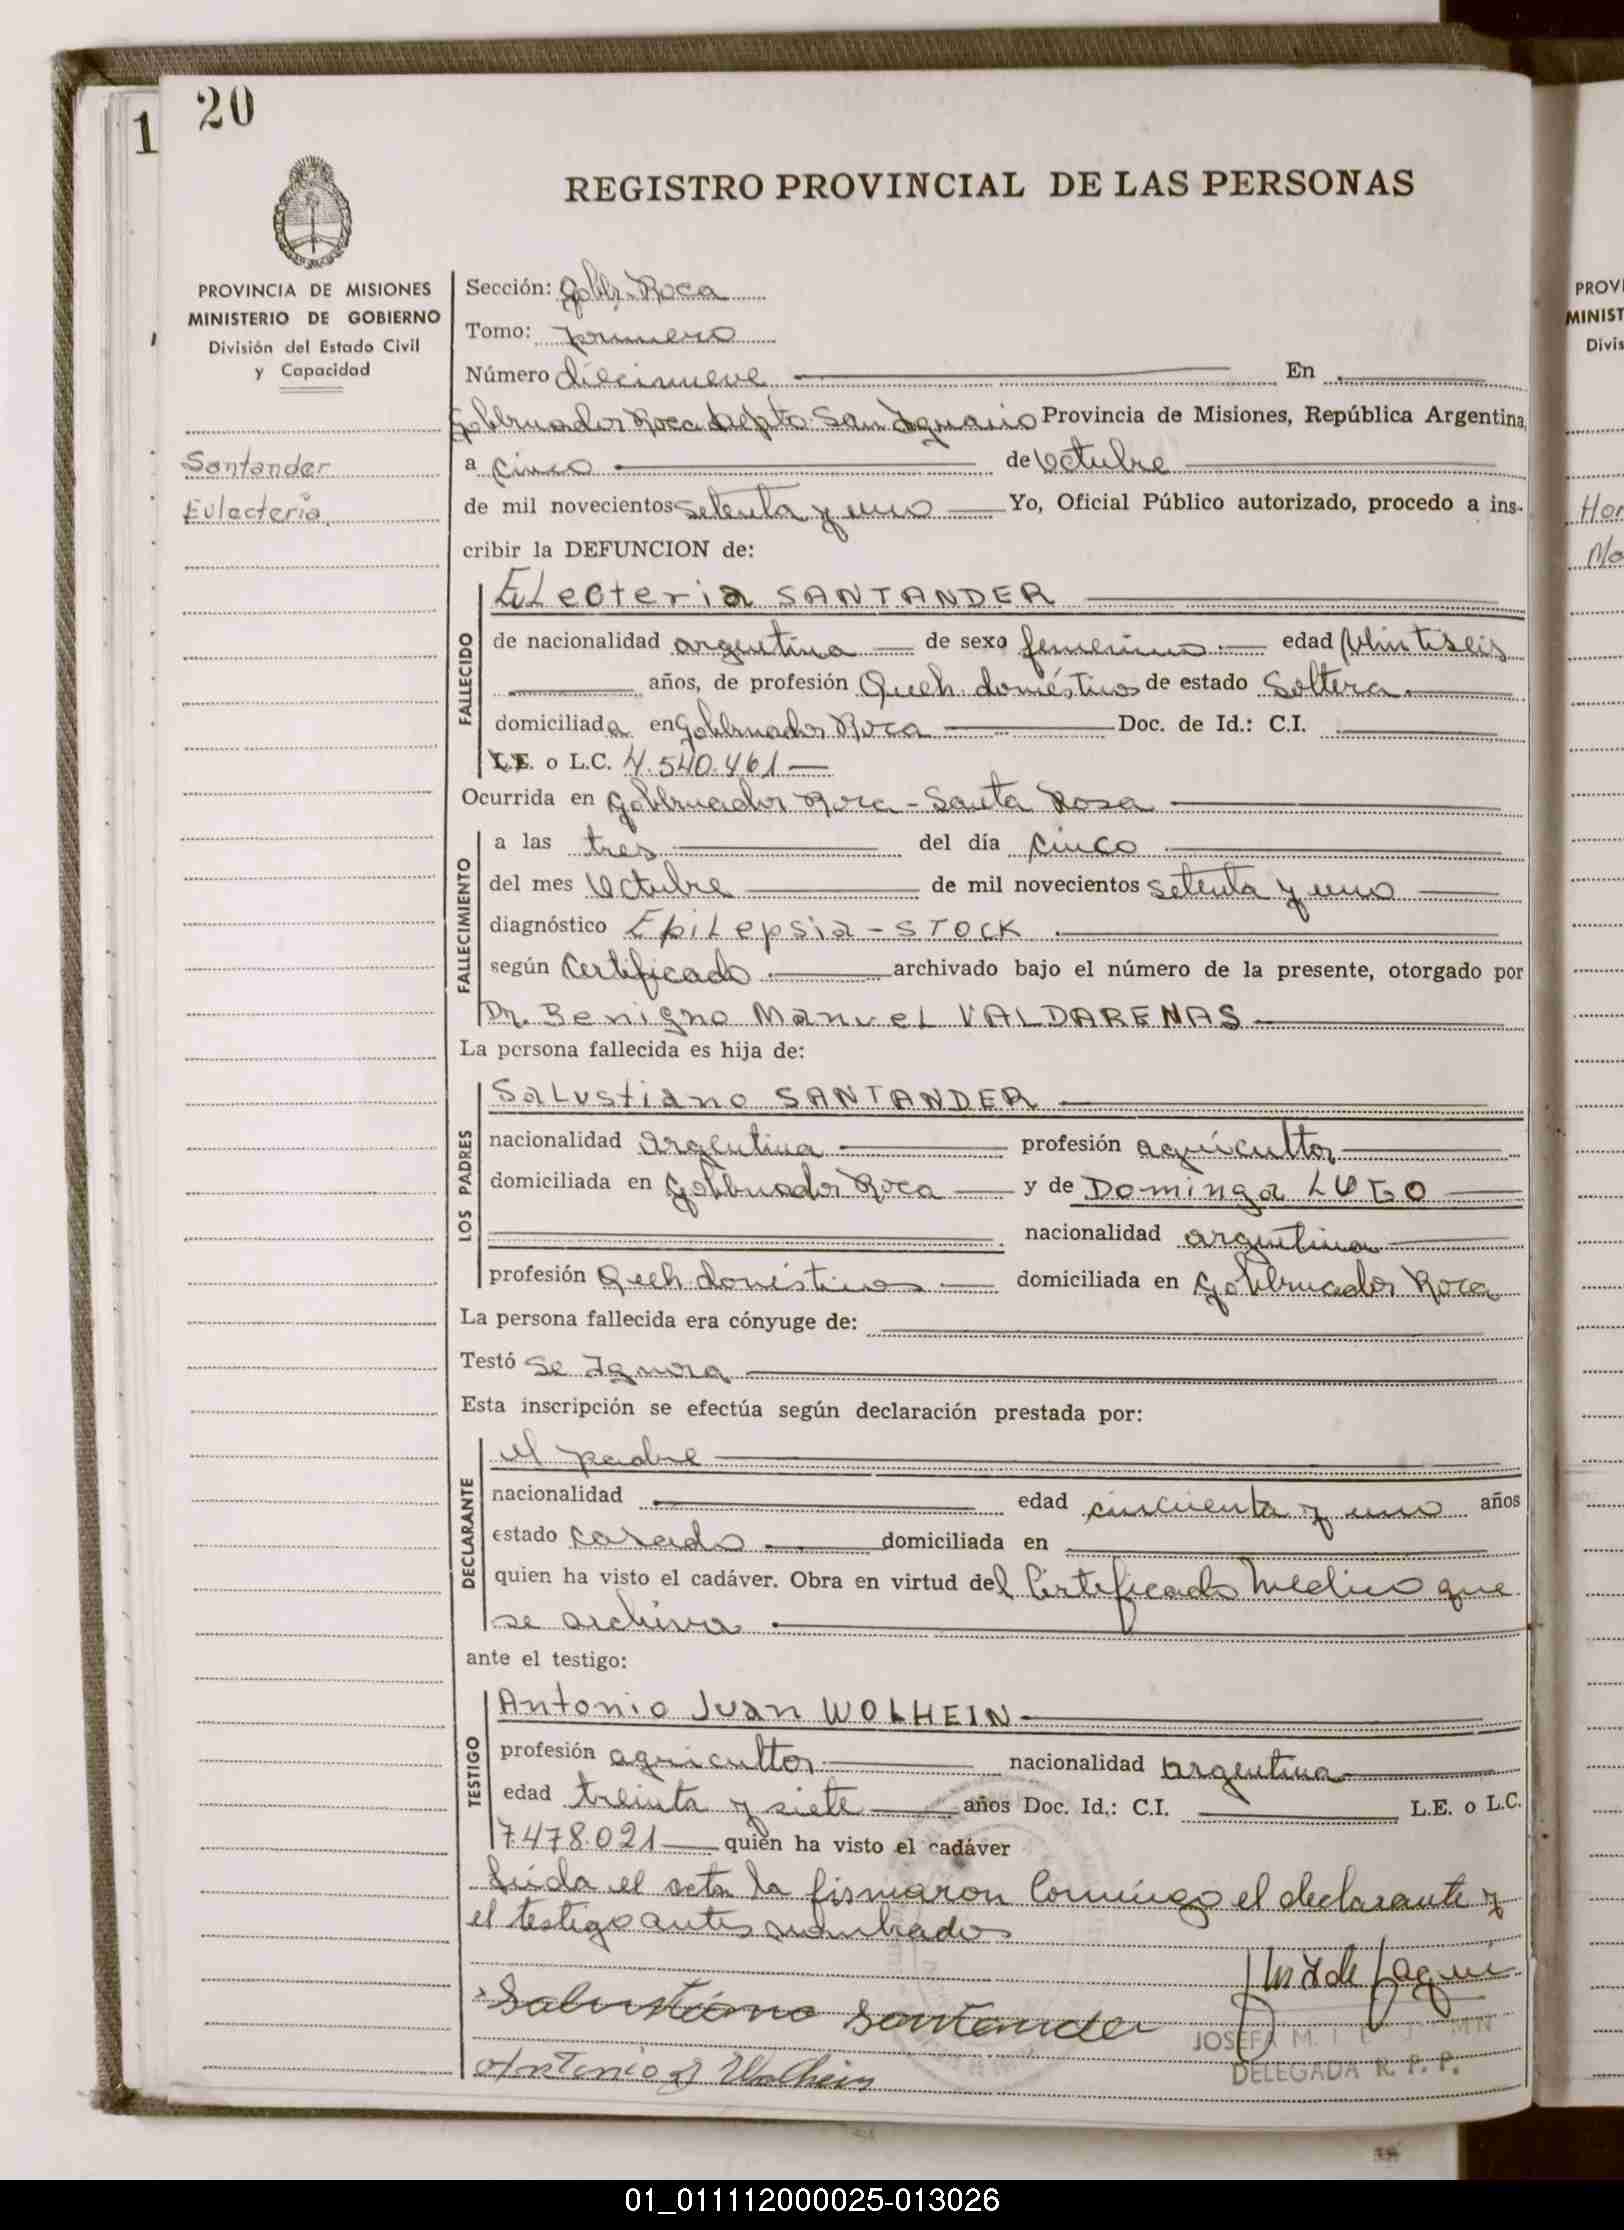 20
1
REGISTRO PROVINCIAL DE LAS PERSONAS
PROVINCIA DE MISIONES
MINISTERIO DE GOBIERNO
División del Estado Civil
y Capacidad
Santander
Eulecteria
Sección: Gobr. Roca
Tomo: primero
Número diecinueve En
Gobernador Roca depto San Ignacio Provincia de Misiones, República Argentina,
a cinco de Octubre
de mil novecientos setenta y uno Yo, Oficial Público autorizado, procedo a ins-
cribir la DEFUNCION de:
FALLECIDO
EuLecteria SANTANDER
de nacionalidad argentina de sexo femenino edad Veintiseis
años, de profesión Queh. domésticos de estado Soltera
domiciliada en Gobernador Roca Doc. de Id.: C.I.
L.E. o L.C. 4.540.461
Ocurrida en Gobernador Roca - Santa Rosa
FALLECIMIENTO
a las tres del día cinco
del mes Octubre de mil novecientos setenta y uno
diagnóstico EpiLepsia - STOCK
según Certificado archivado bajo el número de la presente, otorgado por
Dr. Benigno ManueL VALDARENAS
La persona fallecida es hija de:
LOS PADRES
SaLustiano SANTANDER
nacionalidad Argentina profesión agricultor
domiciliada en Gobernador Roca y de Dominga LUGO
nacionalidad argentina
profesión Queh. domésticos domiciliada en Gobernador Roca
La persona fallecida era cónyuge de:
Testó Se Ignora
Esta inscripción se efectúa según declaración prestada por:
DECLARANTE
el padre
nacionalidad edad cincuenta y uno años
estado casado domiciliada en
quien ha visto el cadáver. Obra en virtud del Certificado Medico que
se archiva
ante el testigo:
TESTIGO
Antonio Juan WOLHEIN
profesión agricultor nacionalidad argentina
edad treinta y siete años Doc. Id.: C.I. L.E. o L.C.
7.478.021 quien ha visto el cadáver
Leida el acta la firmaron Conmigo el declarante y
el testigo antes nombrados
Salustiano Santander
JOSEFA M.
DELEGADA R. P. P.
Antonio J Wolhein
PROVI
MINIST
Divis
Hor
Ma
01_011112000025-013026